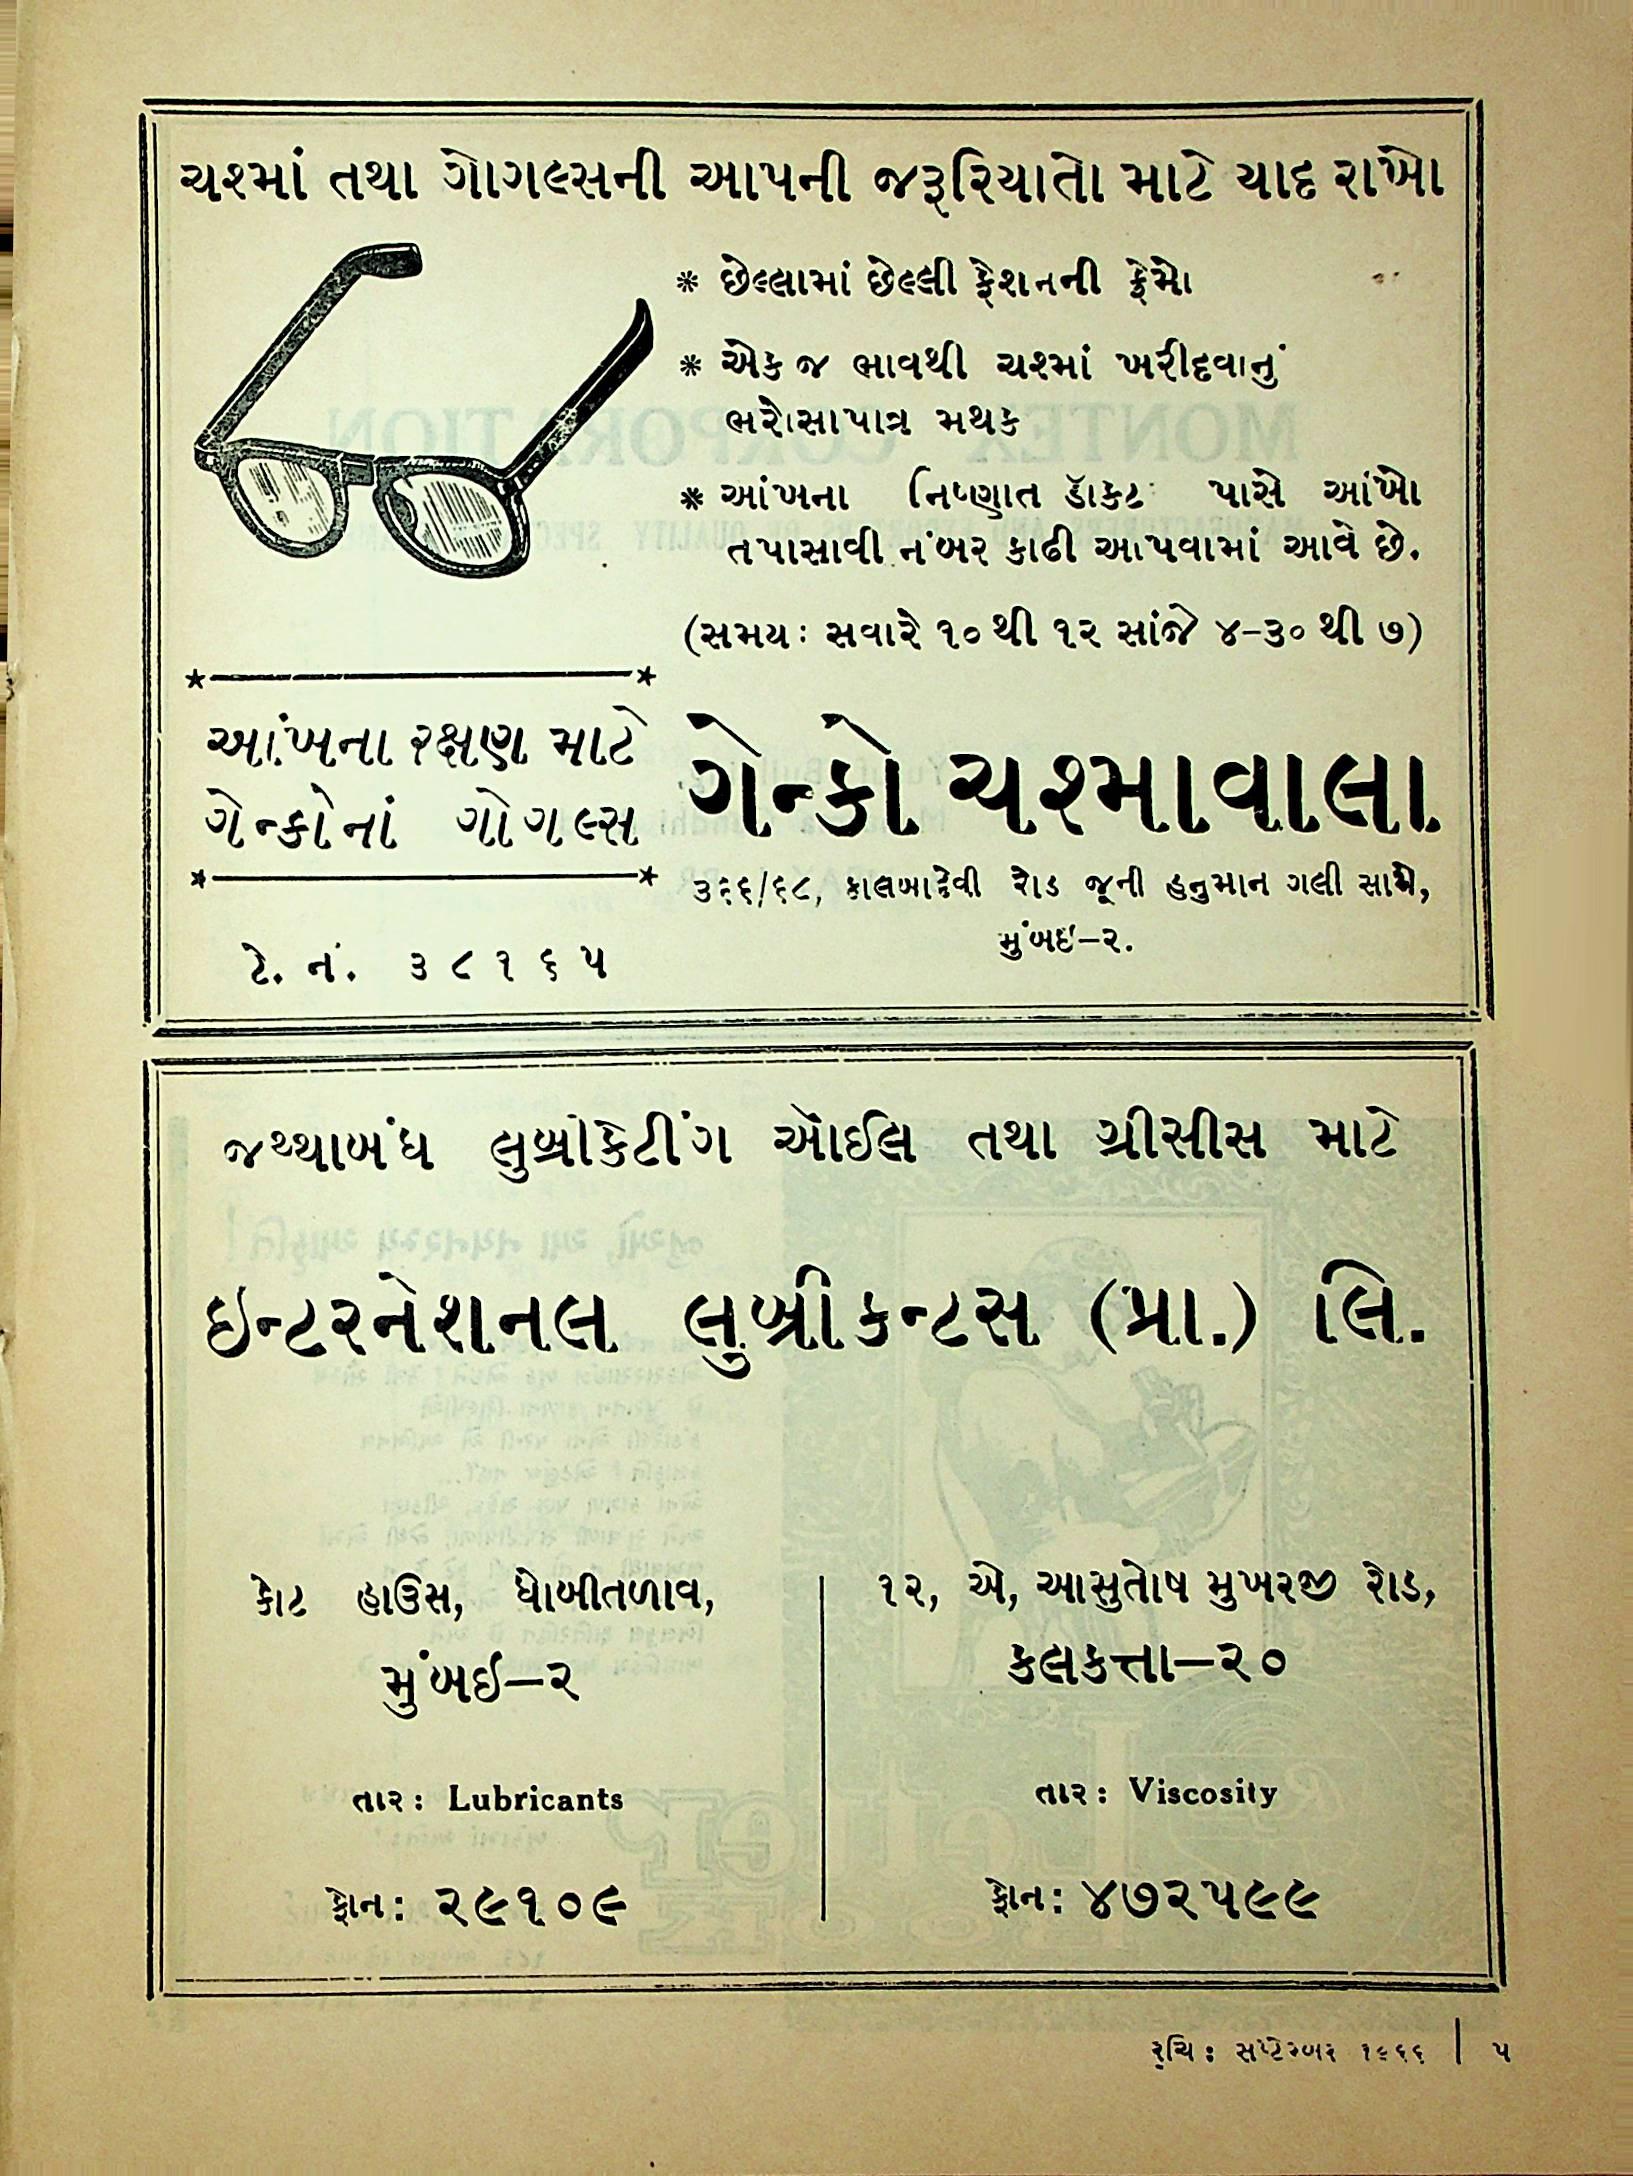 ચશ્માં તથા ગોગલ્સની આપની જરૂરિયાતો માટે યાદ રાખો
* છેલ્લામાં છેલ્લી ફેશનની ફ્રેમો
* એક જ ભાવથી ચશ્માં ખરીદવાનું
ભરોસાપાત્ર મથક
* આંખના નિષ્ણાત ડૉકટર પાસે આંખો
તપાસાવી નંબર કાઢી આપવામાં આવે છે.
(સમય: સવારે ૧૦ થી ૧૨ સાંજે ૪-૩૦ થી ૭)
આંખના રક્ષણ માટે
ગેન્કોનાં ગોગલ્સ
ટે. નં. ૩૮૧૬૫
ગેન્કો ચશ્માવાલા
૩૬૬/૬૮, કાલબાદેવી રોડ જૂની હનુમાન ગલી સામે,
મુંબઇ-૨.
જથ્થાબંધ લુબ્રીકેટીંગ ઑઈલ તથા ગ્રીસીસ માટે
ઇન્ટરનેશનલ લુબ્રીકન્ટસ (પ્રા.) લિ.
કોટ હાઉસ, ધોબીતળાવ,
મુંબઇ-૨
તાર: Lubricants
ફોન: ૨૯૧૦૯
૧૨, એ, આસુતોષ મુખરજી રોડ,
કલકત્તા-૨૦
તાર: Viscosity
ફોન: ૪૭૨૫૯૯
રુચિ: સપ્ટેમ્બર ૧૯૬૬ | ૫